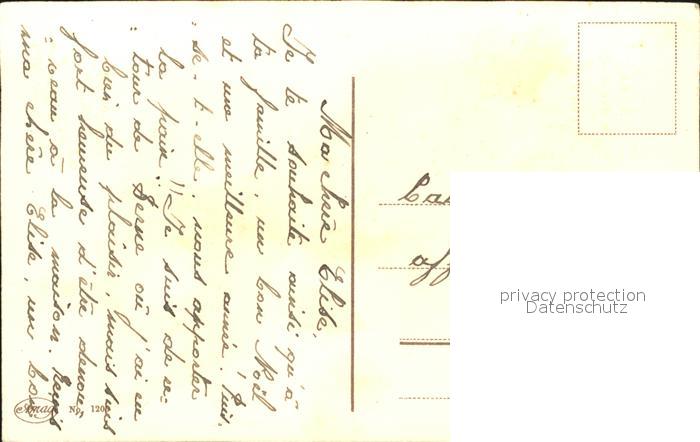 Ma chère Elise,
Je te souhaite ainsi qu'à
ta famille, un bon Noël
et une meilleure année. Puis-
se-t-elle nous apporter
la paix!! Je suis de re-
tour de Berne où j'ai eu
bien du plaisir, mais suis
fort heureuse d'être denou-
veau à la maison. Reçois
ma chère Elise, un bon
Amag No. 120
Ca
aff
privacy protection
Datenschutz